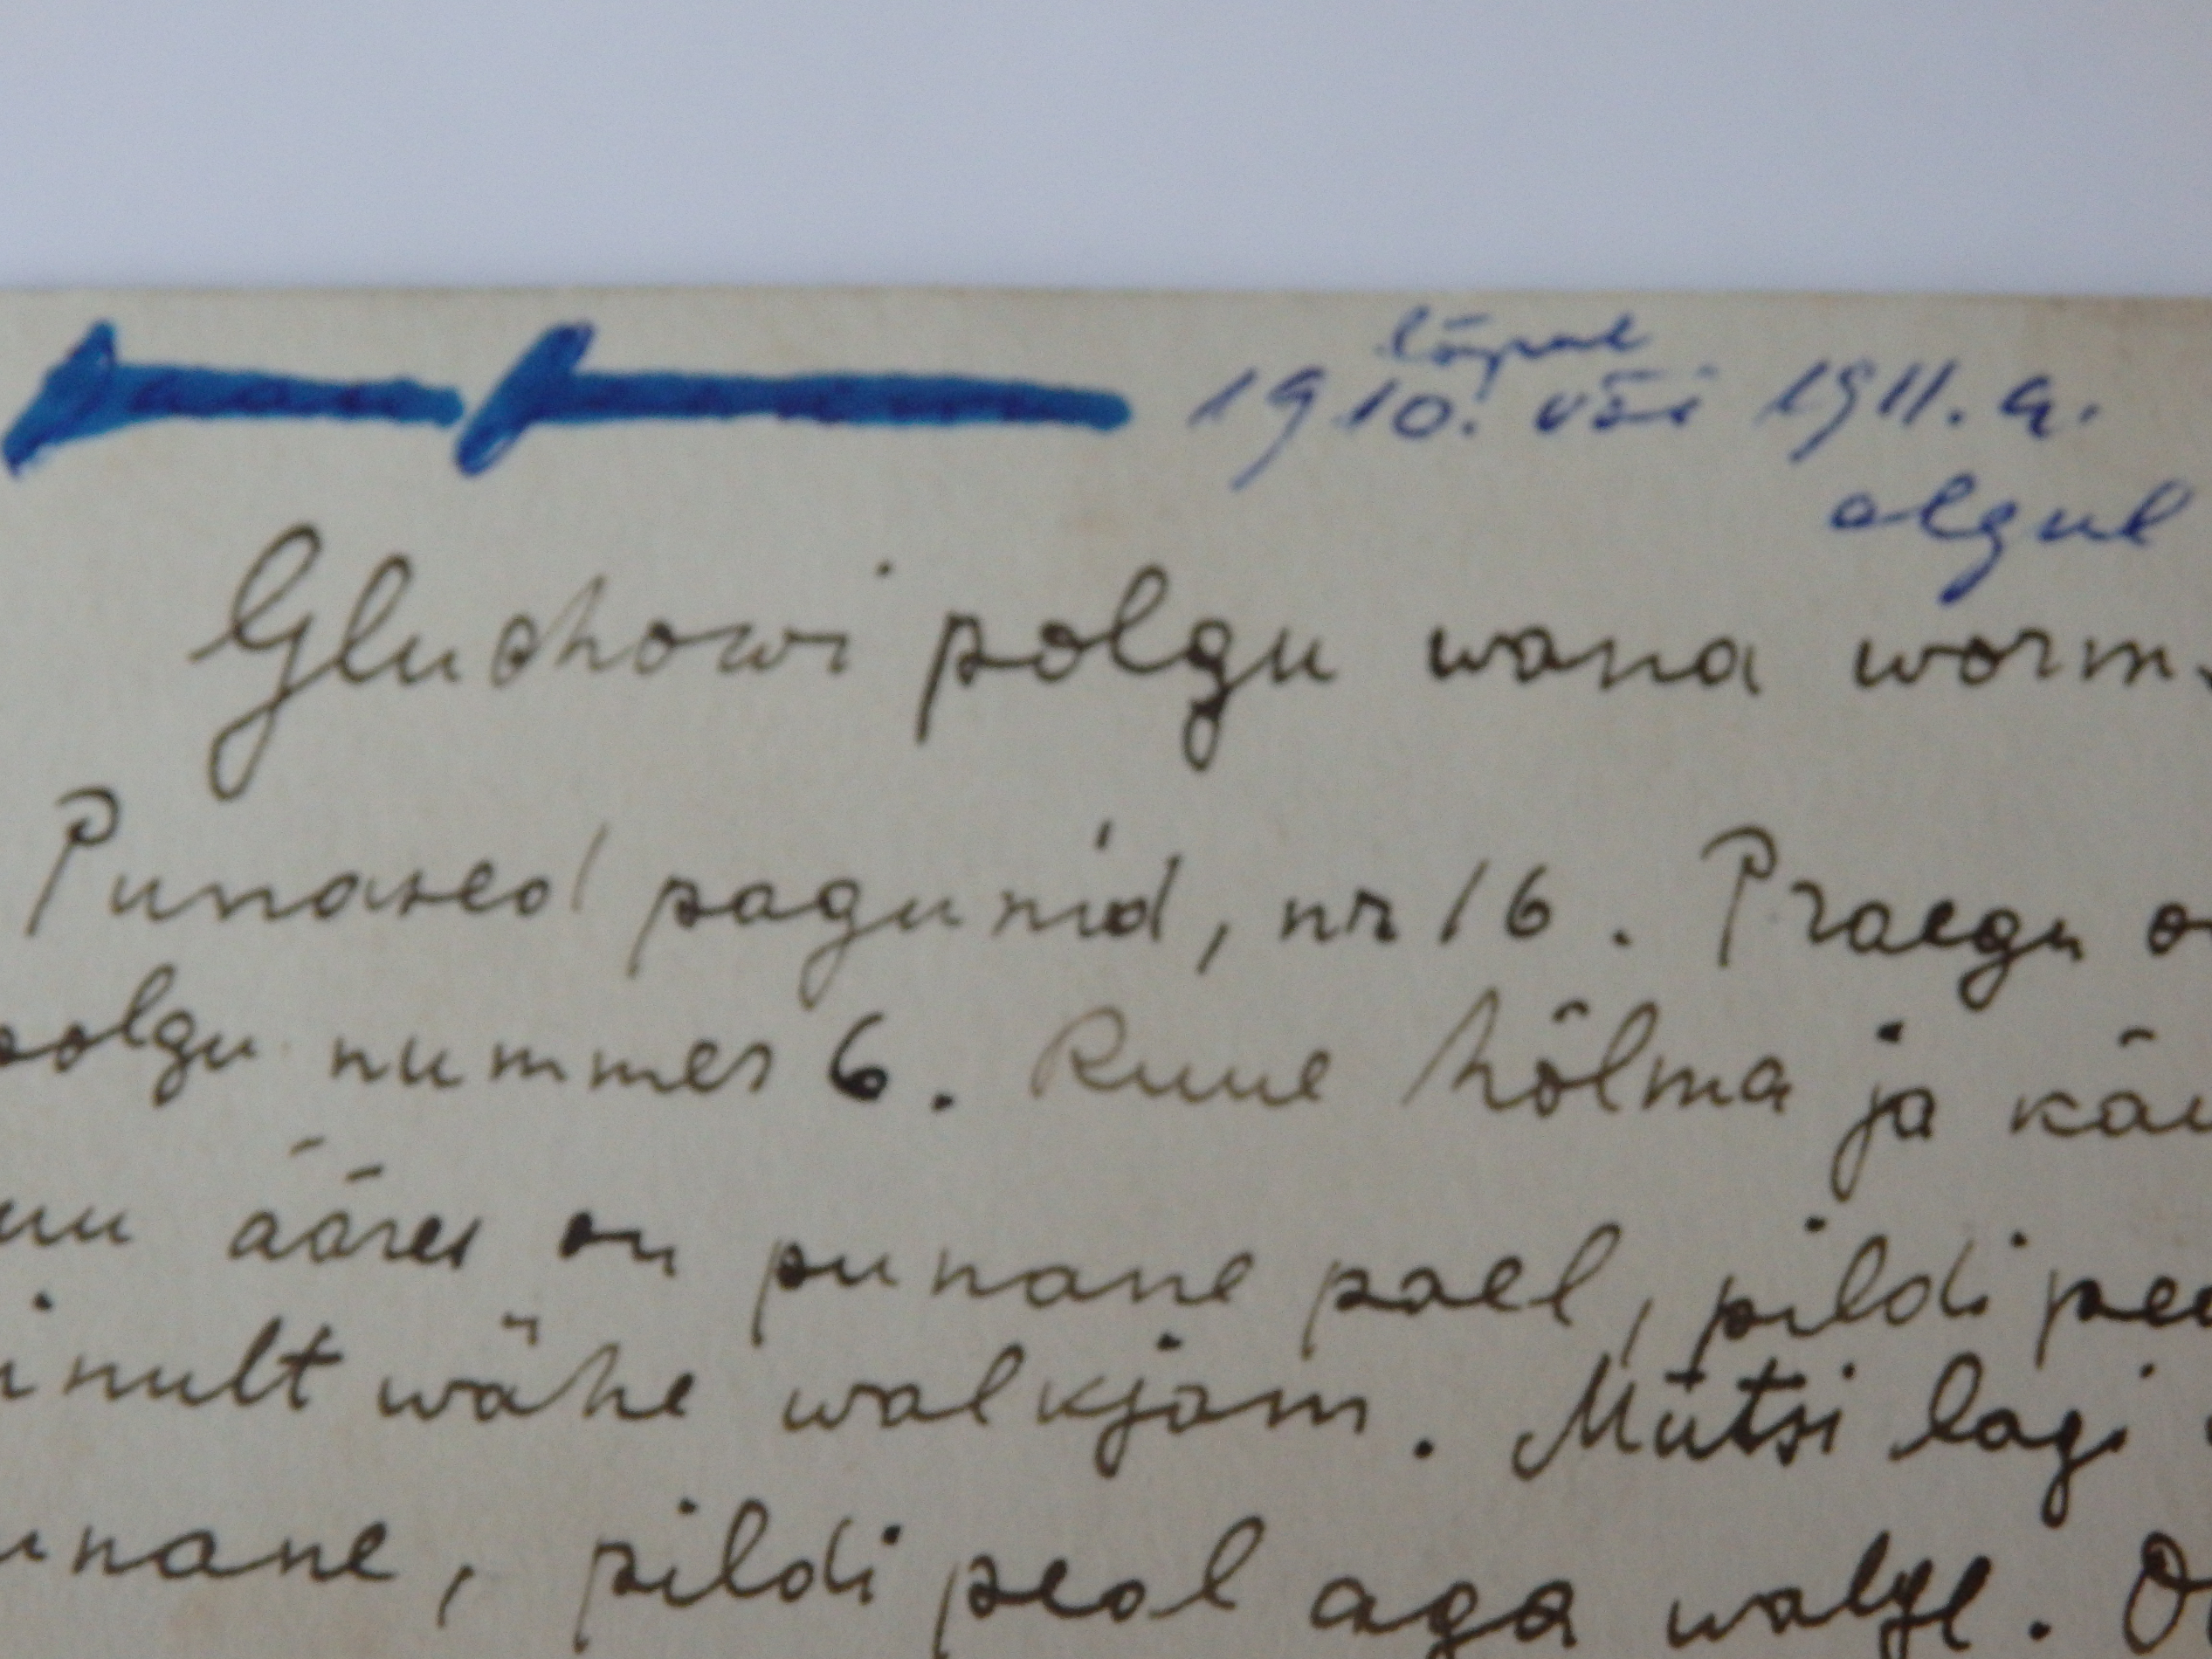 lõpul
1910. või 1911. a.
algul
Gluchowi polgu wana worm.
Punased pagunid, nr 16. Praegu o
polgu nummer 6. Kuue hõlma ja käi
uu ääres on punane pael, pildi pea
inult wähe walkjam. Mütsi lagi
unane, pildi peal aga walge. O